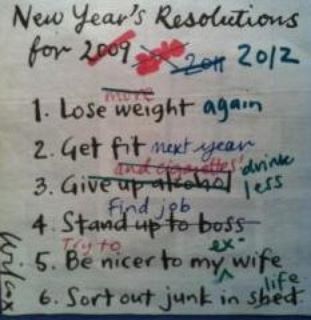 New Year's Resolutions
for 2009 2011 2012
more
1. Lose weight again
2. Get fit next year
and cigarettes! drink
3. Give up alcohol less
Find job
4. Stand up to boss
Try to ex-
5. Be nicer to my wife
life
6. Sort out junk in shed
Wilcox